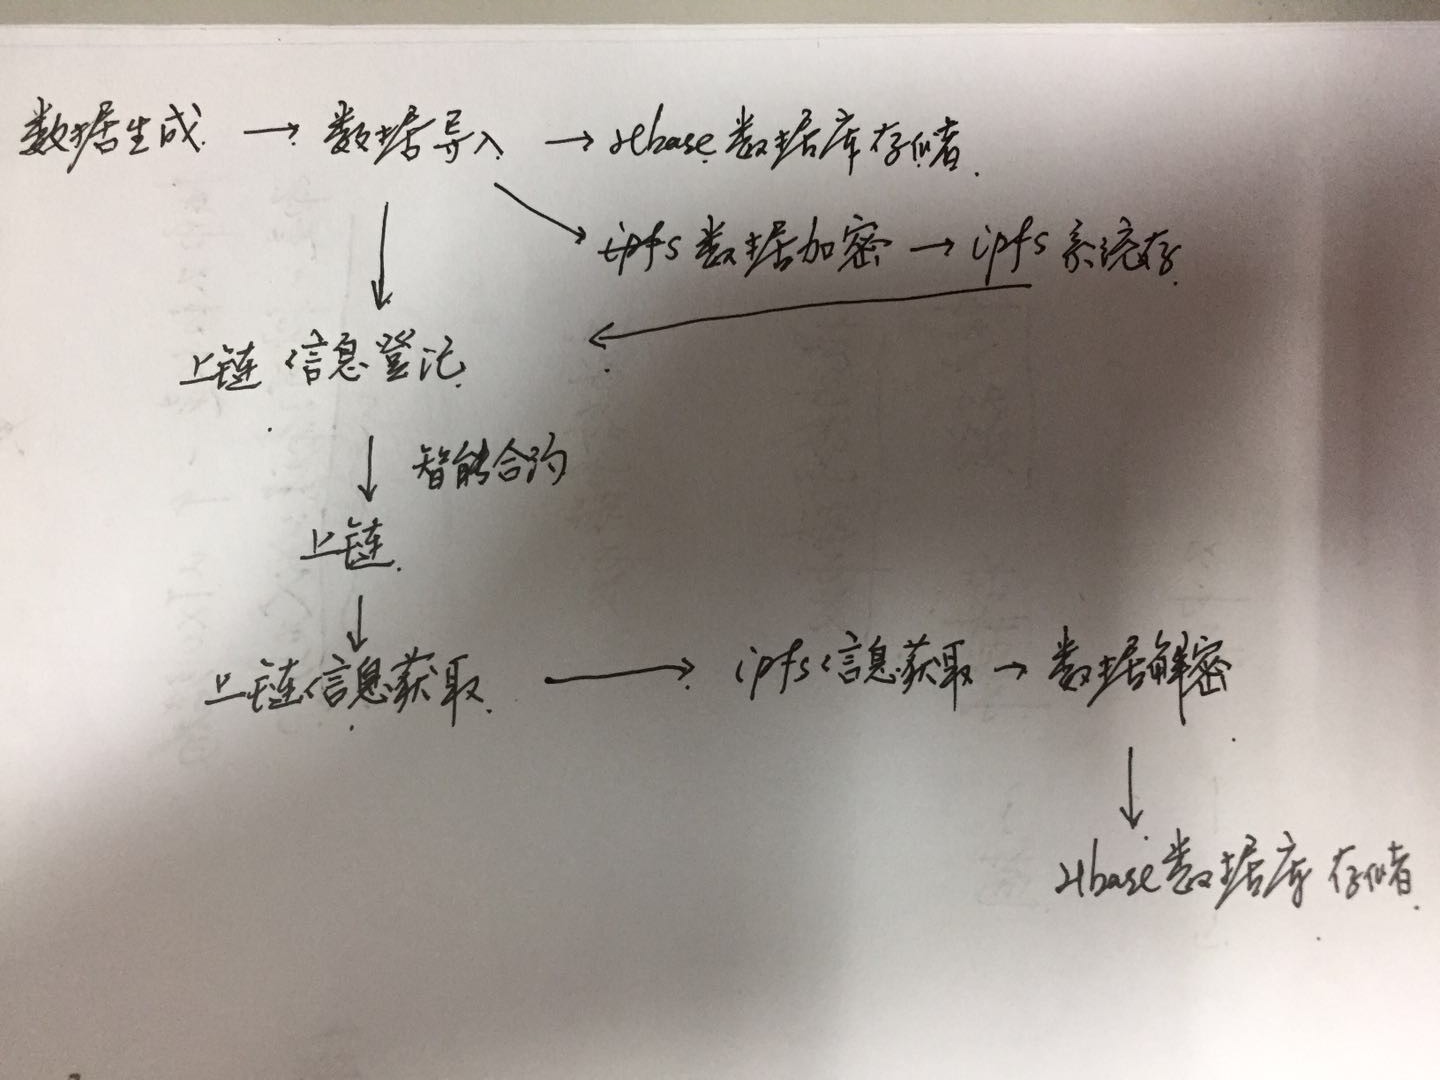 数据生成 → 数据导入 → Hbase数据库存储
ipfs数据加密 → ipfs系统存
上链信息登记
智能合约
上链
上链信息获取 → ipfs信息获取 → 数据解密
Hbase数据库存储